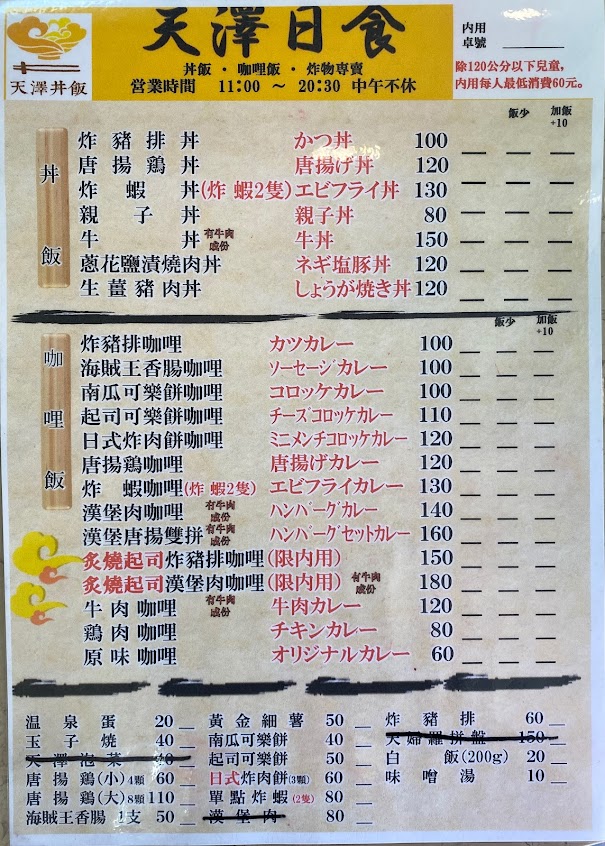 天澤丼飯
天澤日食
丼飯 · 咖哩飯 · 炸物專賣
營業時間 11:00 ～ 20:30 中午不休
內用
桌號
除120公分以下兒童，
內用每人最低消費60元。
丼飯
飯少 加飯+10
炸豬排丼 かつ丼 100
唐揚鶏丼 唐揚げ丼 120
炸蝦丼(炸 蝦2隻) エビフライ丼 130
親子丼 親子丼 80
牛丼 有牛肉成份 牛丼 150
蔥花鹽漬燒肉丼 ネギ塩豚丼 120
生薑豬肉丼 しょうが焼き丼 120
咖哩飯
飯少 加飯+10
炸豬排咖哩 カツカレー 100
海賊王香腸咖哩 ソーセージカレー 100
南瓜可樂餅咖哩 コロッケカレー 100
起司可樂餅咖哩 チーズコロッケカレー 110
日式炸肉餅咖哩 ミニメンチコロッケカレー 120
唐揚鶏咖哩 唐揚げカレー 120
炸 蝦咖哩(炸 蝦2隻) エビフライカレー 130
漢堡肉咖哩 有牛肉成份 ハンバーグカレー 140
漢堡唐揚雙拼 有牛肉成份 ハンバーグセットカレー 160
炙燒起司炸豬排咖哩(限內用) 150
炙燒起司漢堡肉咖哩(限內用) 有牛肉成份 180
牛肉咖哩 有牛肉成份 牛肉カレー 120
鶏肉咖哩 チキンカレー 80
原味咖哩 オリジナルカレー 60
温泉蛋 20
玉子燒 40
天澤泡菜 40
唐揚鶏(小)4顆 60
唐揚鶏(大)8顆 110
海賊王香腸 1支 50
黃金細薯 50
南瓜可樂餅 40
起司可樂餅 50
日式炸肉餅(3顆) 60
單點炸蝦(2隻) 80
漢堡肉 80
炸豬排 60
天婦羅拼盤 150
白飯(200g) 20
味噌湯 10